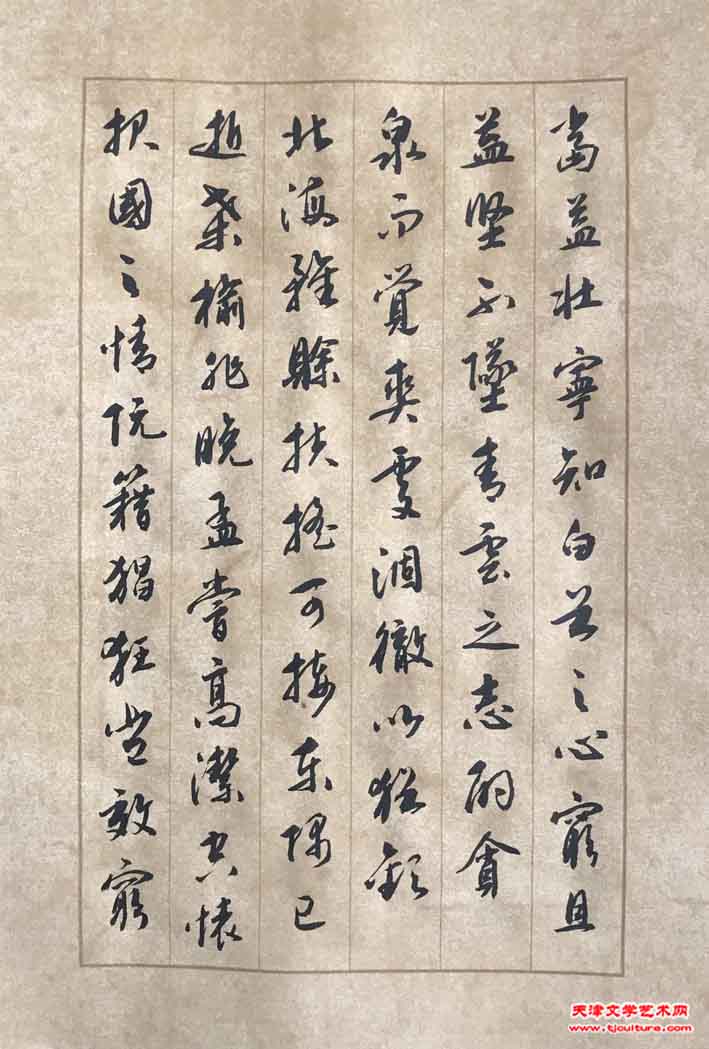 當益壯寧知白首之心窮且
益堅不墜青雲之志酌貪
泉而覺爽處涸徹以猶歡
北海雖賒扶搖可接東隅已
逝桑榆非晚孟嘗高潔空懷
报國之情阮籍猖狂豈效窮
天津文学艺术网
www.tjculture.com